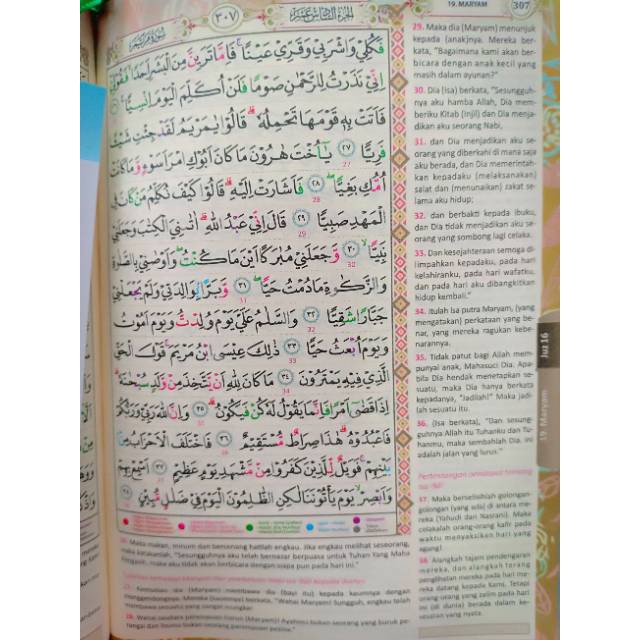 سورة مريم
٣٠٧
الجزء السادس عشر
19. MARYAM
307
فَكُلِيْ وَاشْرَبِيْ وَقَرِّيْ عَيْنًا ۚ فَاِمَّا تَرَيِنَّ مِنَ الْبَشَرِ اَحَدًا ۙ فَقُوْلِيْٓ
اِنِّيْ نَذَرْتُ لِلرَّحْمٰنِ صَوْمًا فَلَنْ اُكَلِّمَ الْيَوْمَ اِنْسِيًّا ۚ
فَاَتَتْ بِهٖ قَوْمَهَا تَحْمِلُهٗ ۗ قَالُوْا يٰمَرْيَمُ لَقَدْ جِئْتِ شَيْـًٔا
فَرِيًّا ٢٧ يٰٓاُخْتَ هٰرُوْنَ مَا كَانَ اَبُوْكِ امْرَاَ سَوْءٍ وَّمَا كَانَتْ
اُمُّكِ بَغِيًّا ۖ ٢٨ فَاَشَارَتْ اِلَيْهِ ۗ قَالُوْا كَيْفَ نُكَلِّمُ مَنْ كَانَ فِى
الْمَهْدِ صَبِيًّا ٢٩ قَالَ اِنِّيْ عَبْدُ اللّٰهِ ۗ اٰتٰىنِيَ الْكِتٰبَ وَجَعَلَنِيْ
نَبِيًّا ۙ ٣٠ وَّجَعَلَنِيْ مُبٰرَكًا اَيْنَ مَا كُنْتُ ۖ وَاَوْصٰنِيْ بِالصَّلٰوةِ
وَالزَّكٰوةِ مَا دُمْتُ حَيًّا ۖ ٣١ وَّبَرًّا ۢ بِوَالِدَتِيْ وَلَمْ يَجْعَلْنِيْ
جَبَّارًا شَقِيًّا ٣٢ وَالسَّلٰمُ عَلَيَّ يَوْمَ وُلِدْتُّ وَيَوْمَ اَمُوْتُ
وَيَوْمَ اُبْعَثُ حَيًّا ٣٣ ذٰلِكَ عِيْسَى ابْنُ مَرْيَمَ ۚ قَوْلَ الْحَقِّ
الَّذِيْ فِيْهِ يَمْتَرُوْنَ ٣٤ مَا كَانَ لِلّٰهِ اَنْ يَّتَّخِذَ مِنْ وَّلَدٍ سُبْحٰنَهٗ ۗ
اِذَا قَضٰٓى اَمْرًا فَاِنَّمَا يَقُوْلُ لَهٗ كُنْ فَيَكُوْنُ ۗ ٣٥ وَاِنَّ اللّٰهَ رَبِّيْ وَرَبُّكُمْ
فَاعْبُدُوْهُ ۗ هٰذَا صِرَاطٌ مُّسْتَقِيْمٌ ٣٦ فَاخْتَلَفَ الْاَحْزَابُ مِنْۢ
بَيْنِهِمْ ۚ فَوَيْلٌ لِّلَّذِيْنَ كَفَرُوْا مِنْ مَّشْهَدِ يَوْمٍ عَظِيْمٍ ٣٧ اَسْمِعْ بِهِمْ
وَاَبْصِرْ ۙ يَوْمَ يَأْتُوْنَنَا لٰكِنِ الظّٰلِمُوْنَ الْيَوْمَ فِيْ ضَلٰلٍ مُّبِيْنٍ ٣٨
26. Maka makan, minum dan bersenang hatilah engkau. Jika engkau melihat seseorang,
maka katakanlah, "Sesungguhnya aku telah bernazar berpuasa untuk Tuhan Yang Maha
Pengasih, maka aku tidak akan berbicara dengan siapa pun pada hari ini."
27. Kemudian dia (Maryam) membawa dia (bayi itu) kepada kaumnya dengan
menggendongnya. Mereka (kaumnya) berkata, "Wahai Maryam! Sungguh, engkau telah
membawa sesuatu yang sangat mungkar.
28. Wahai saudara perempuan Harun (Maryam)! Ayahmu bukan seorang yang buruk pe-
rangai dan ibumu bukan seorang perempuan pezina."
29. Maka dia (Maryam) menunjuk
kepada (anak)nya. Mereka ber-
kata, "Bagaimana kami akan ber-
bicara dengan anak kecil yang
masih dalam ayunan?"
30. Dia (Isa) berkata, "Sesungguh-
nya aku hamba Allah, Dia mem-
beriku Kitab (Injil) dan Dia menja-
dikan aku seorang Nabi,
31. dan Dia menjadikan aku se-
orang yang diberkahi di mana saja
aku berada, dan Dia memerintah-
kan kepadaku (melaksanakan)
salat dan (menunaikan) zakat se-
lama aku hidup;
32. dan berbakti kepada ibuku,
dan Dia tidak menjadikan aku se-
orang yang sombong lagi celaka.
33. Dan kesejahteraan semoga di-
limpahkan kepadaku, pada hari
kelahiranku, pada hari wafatku,
dan pada hari aku dibangkitkan
hidup kembali."
34. Itulah Isa putra Maryam, (yang
mengatakan) perkataan yang be-
nar, yang mereka ragukan kebe-
narannya.
35. Tidak patut bagi Allah mem-
punyai anak, Mahasuci Dia. Apa-
bila Dia hendak menetapkan se-
suatu, maka Dia hanya berkata
kepadanya, "Jadilah!" Maka jadi-
lah sesuatu itu.
36. (Isa berkata), "Dan sesung-
guhnya Allah itu Tuhanku dan Tu-
hanmu, maka sembahlah Dia. Ini
adalah jalan yang lurus."
37. Maka berselisihlah golongan-
golongan (yang ada) di antara me-
reka (Yahudi dan Nasrani). Maka
celakalah orang-orang kafir pada
waktu menyaksikan hari yang
agung!
38. Alangkah tajam pendengaran
mereka, dan alangkah terang
penglihatan mereka pada hari me-
reka datang kepada Kami. Tetapi
orang-orang yang zalim pada hari
ini (di dunia) berada dalam ke-
sesatan yang nyata.
19. Maryam
Juz 16